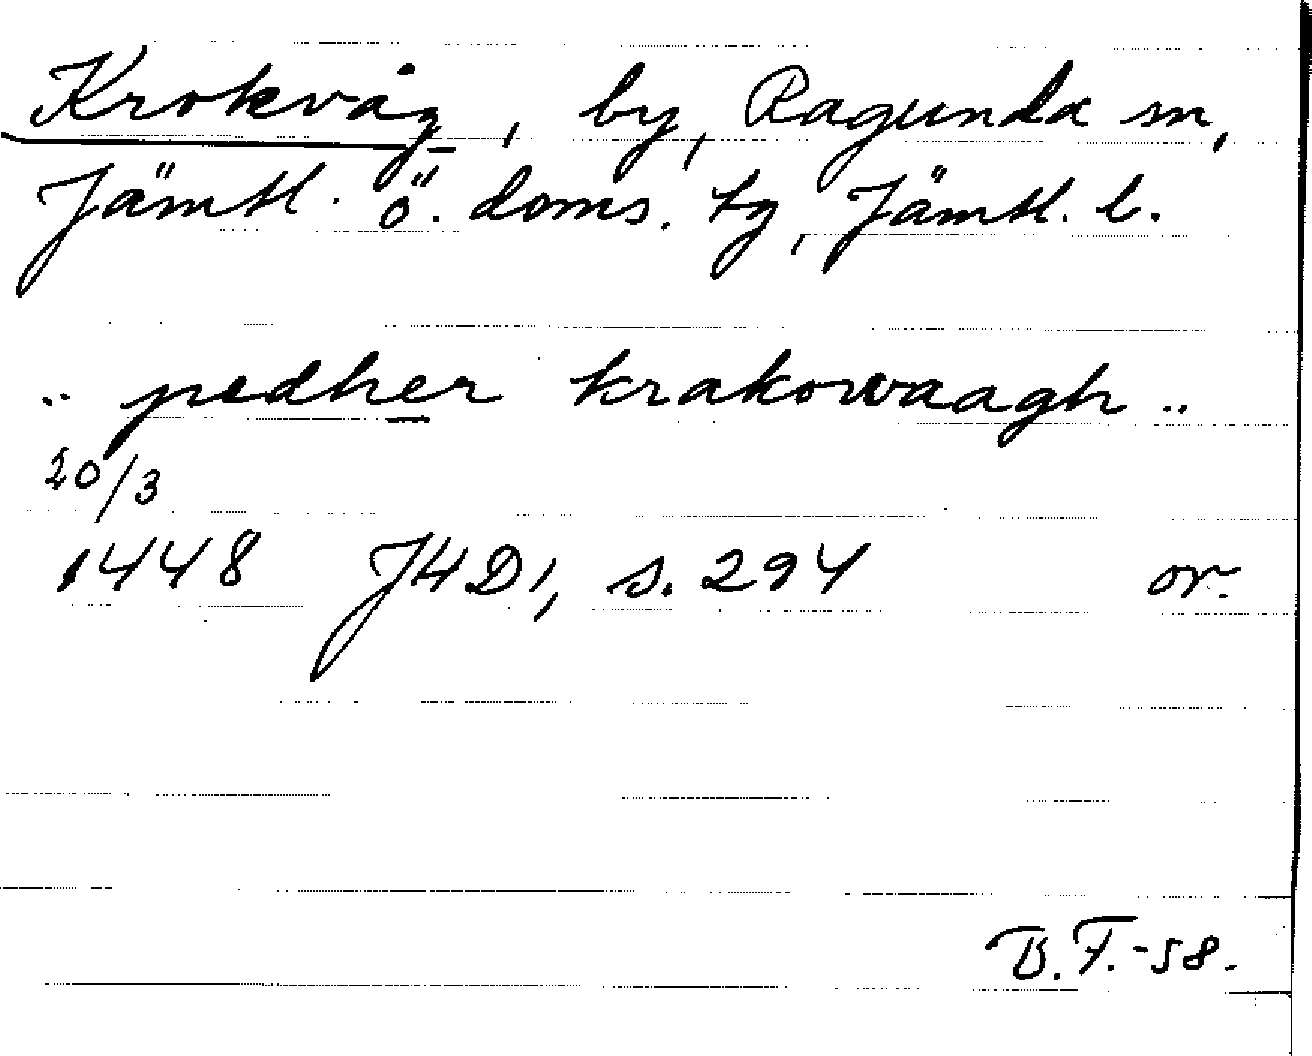 Krokvåg, by, Ragunda sn,
Jämtl. ö. doms. tg, Jämtl. l.
.. pedher krakowaagh ..
20/3
1448 JHD1, s. 294 or.
B.F.-58.